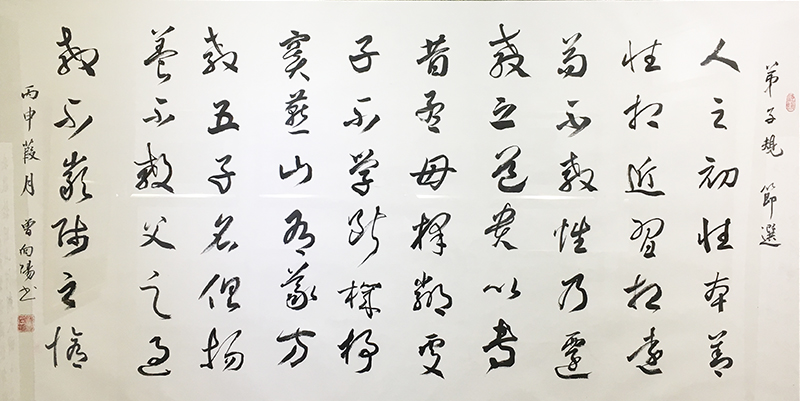 弟子規 節選
人之初性本善
性相近習相遠
苟不教性乃遷
教之道貴以專
昔孟母擇鄰處
子不学斷機杼
竇燕山有義方
教五子名俱揚
養不教父之過
教不嚴師之惰
丙申葭月 曾向陽书